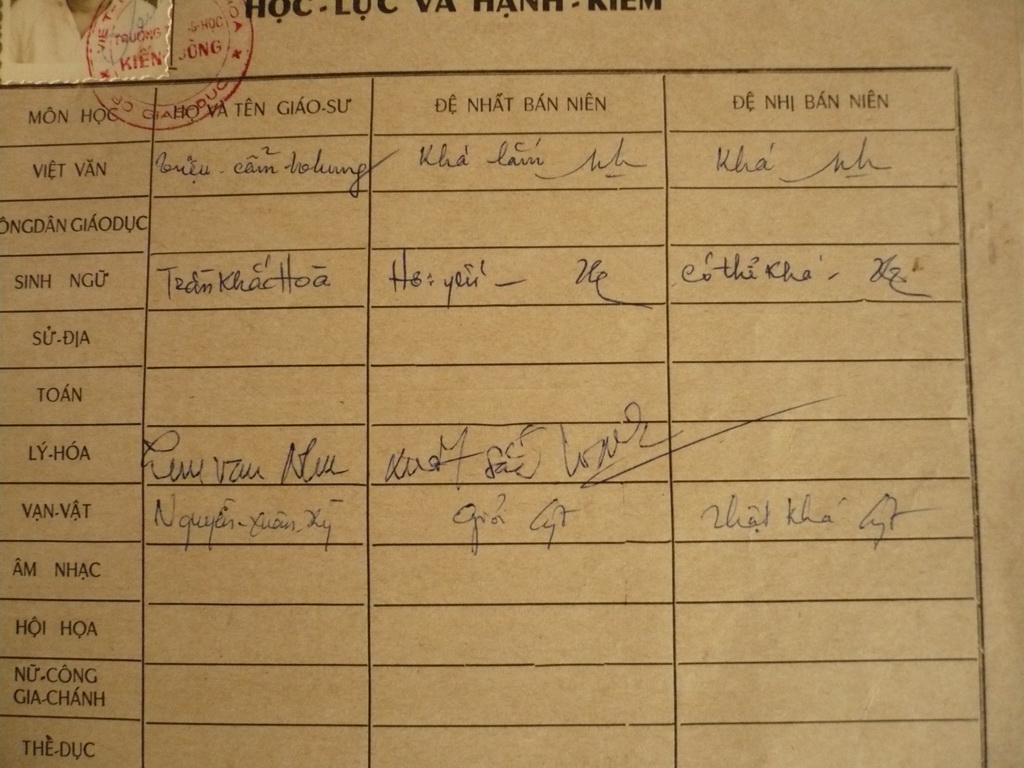 HỌC-LỰC VÀ HẠNH-KIỂM
TRƯỜNG
KIẾN
MÔN HỌC HỌ VÀ TÊN GIÁO-SƯ ĐỆ NHẤT BÁN NIÊN ĐỆ NHỊ BÁN NIÊN
VIỆT VĂN Khá lắm Khá
ÔNGDÂN GIÁODỤC
SINH NGỮ Trần Khắc Hoà Hơi yếu - Có thể Khá -
SỬ-ĐỊA
TOÁN
LÝ-HÓA Xuất sắc
VẠN-VẬT Nguyễn-Xuân-Kỳ Giỏi Thật Khá
ÂM NHẠC
HỘI HỌA
NỮ-CÔNG
GIA-CHÁNH
THỂ-DỤC